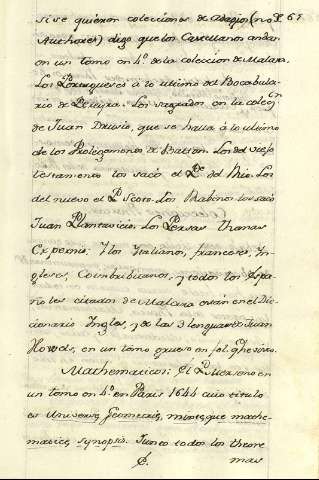 si se quieren colecciones de adagios (no P. 67
Authores) digo que los Castellanos andan
en un tomo en 4º. de la coleccion de Malara.
Los Portugueses à lo ultimo del Bocabula-
rio de Pereyra. Los sagrados en la coleccn.
de Juan Drusio, que se halla à lo ultimo
de los Prolegomenos de Balton. Los del viejo
testamento los sacò el Pe. del Rio. Los
del nuevo el P. Scoto. Los Rabinos los sacò
Juan Plantavicio. Los Persas Thomas
Expernio. Y los Italianos, franceses, In-
gleses, Coimbribianos, y todos los Espa-
ñoles citados de Malara están en el Dic-
cionario Ingles, y de las 3 lenguas de Juan
Howels, en un tomo grueso en fol.
Mathematicos: El P. Mersenio en
un tomo en 4º. en Paris 1644 cuio titulo
es Universæ Geometriæ, mixtæque mathe-
maticæ synopsis. Junto todos los theore
mas